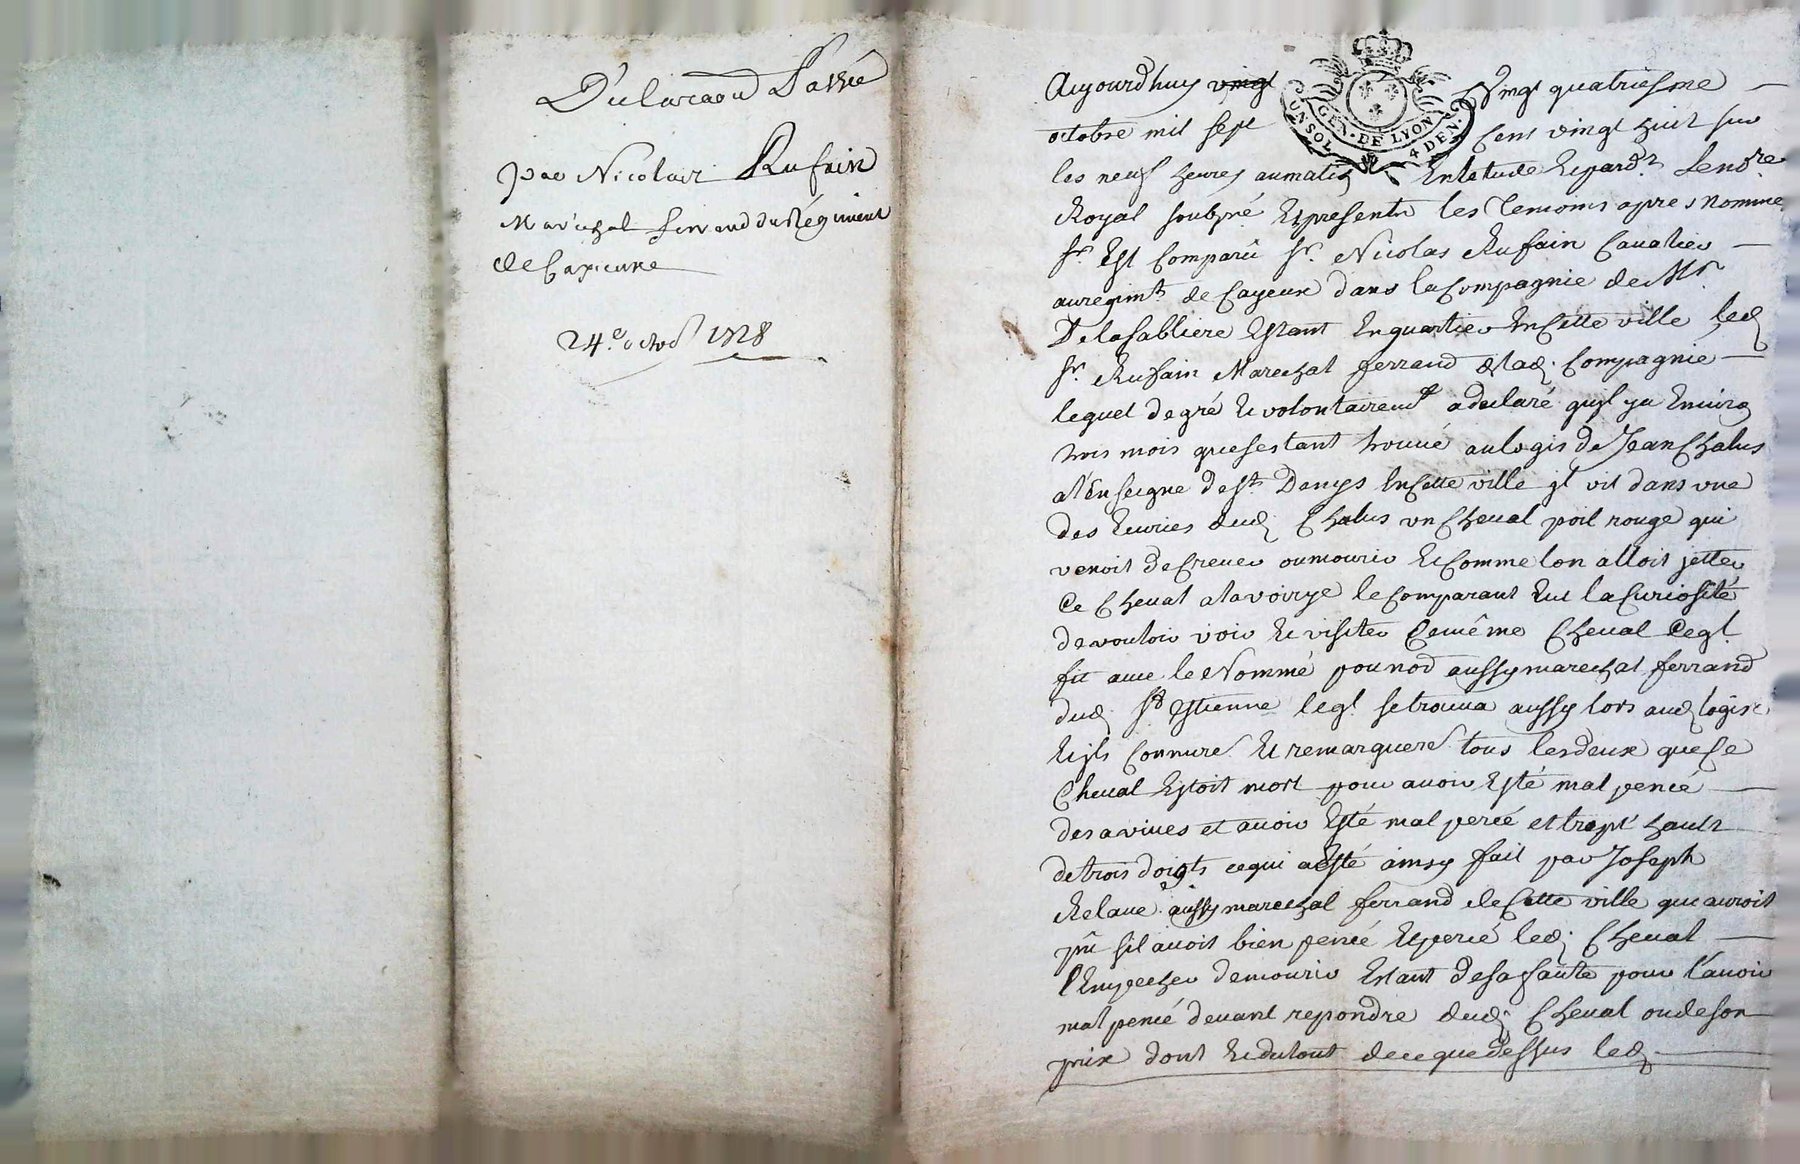 Declaraon Passée
par Nicolais Rufain
Maréchal ferrand du Régiment
de Cayeuxe
24.e octob 1728
GEN. DE LYON
UN SOL 4 DEN.
Aujourdhuy vingt vingt quatriesme
octobre mil sept cent vingt huit sur
les neuf heures au matin En letude Et pard.t le no.re
Royal soubzné Et présents les Temoins apres nommé
sr. Est Comparû sr. Nicolas Rufain Cavalier
au regimt de Cayeux dans la Compagnie de Mr.
De la Sabliere Estant En quartier En Cette ville led
sr. Rufain Marechal ferrand de lad. Compagnie
lequel de gré Et volontairemt a declaré qu'jl ya Enuiro
trois mois que sestant trouué au logis de Jean Chalus
a l'Enseigne de st. Denys En Cette ville jl vit dans vne
des Ecuries dud. Chalus vn Cheual poil rouge qui
venoit de Creuer ou mourir Et Comme lon alloit jetter
Ce Cheual a la voirye le Comparant Eut la Curiosité
de vouloir voir Et visiter Ce même Cheual Ce ql.
fit auec le Nommé pounod aussy marechal ferrand
dud. st Estienne leql. se trouua aussy lors aud. logis
Et jls Connure Et remarquere tous les deux que Ce
Cheual Estoit mort pour auoir Esté mal pencé
des aviues et auoir Esté mal percé et trop hault
de trois doigts ce qui a Esté ainsy fait par Joseph
Relaue aussy marechal ferrand de Cette ville qui auroit
pû sil auoit bien pencé Et percé led. Cheual
l'Empecher de mourir Estant de sa faute pour l'auoir
mal pencé deuant repondre dud. Cheual ou de son
prix dont Et du tout de ce que dessus led.